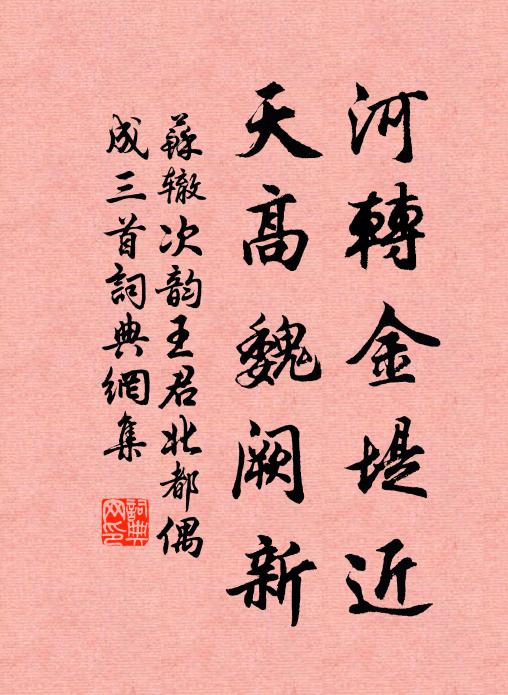 河轉金堤近
天高魏阙新
蘇辙次韵王君北都偶
成三首詞典網集
詞典
网印